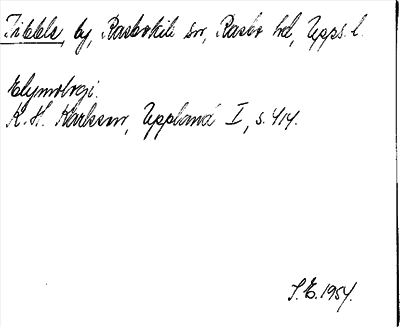 Tibble, by, Rasbokils sn, Rasbo hd, Upps. l.
Etymologi.
K. H. Karlsson, Uppland I, s. 414.
S. E. 1954.